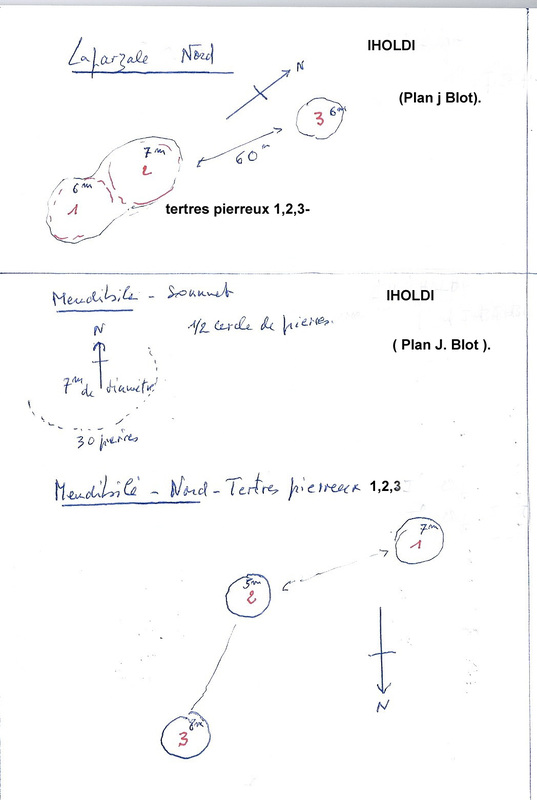 Laparzale Nord
IHOLDI
(Plan j Blot).
N
3 6m
60m
7m
2
6m
1
tertres pierreux 1,2,3-
Mendibile - Sommet
IHOLDI
N
1/2 cercle de pierres.
( Plan J. Blot ).
7m de diamètre
30 pierres
Mendibilé - Nord - Tertres pierreux 1,2,3
7m
1
5m
2
N
3